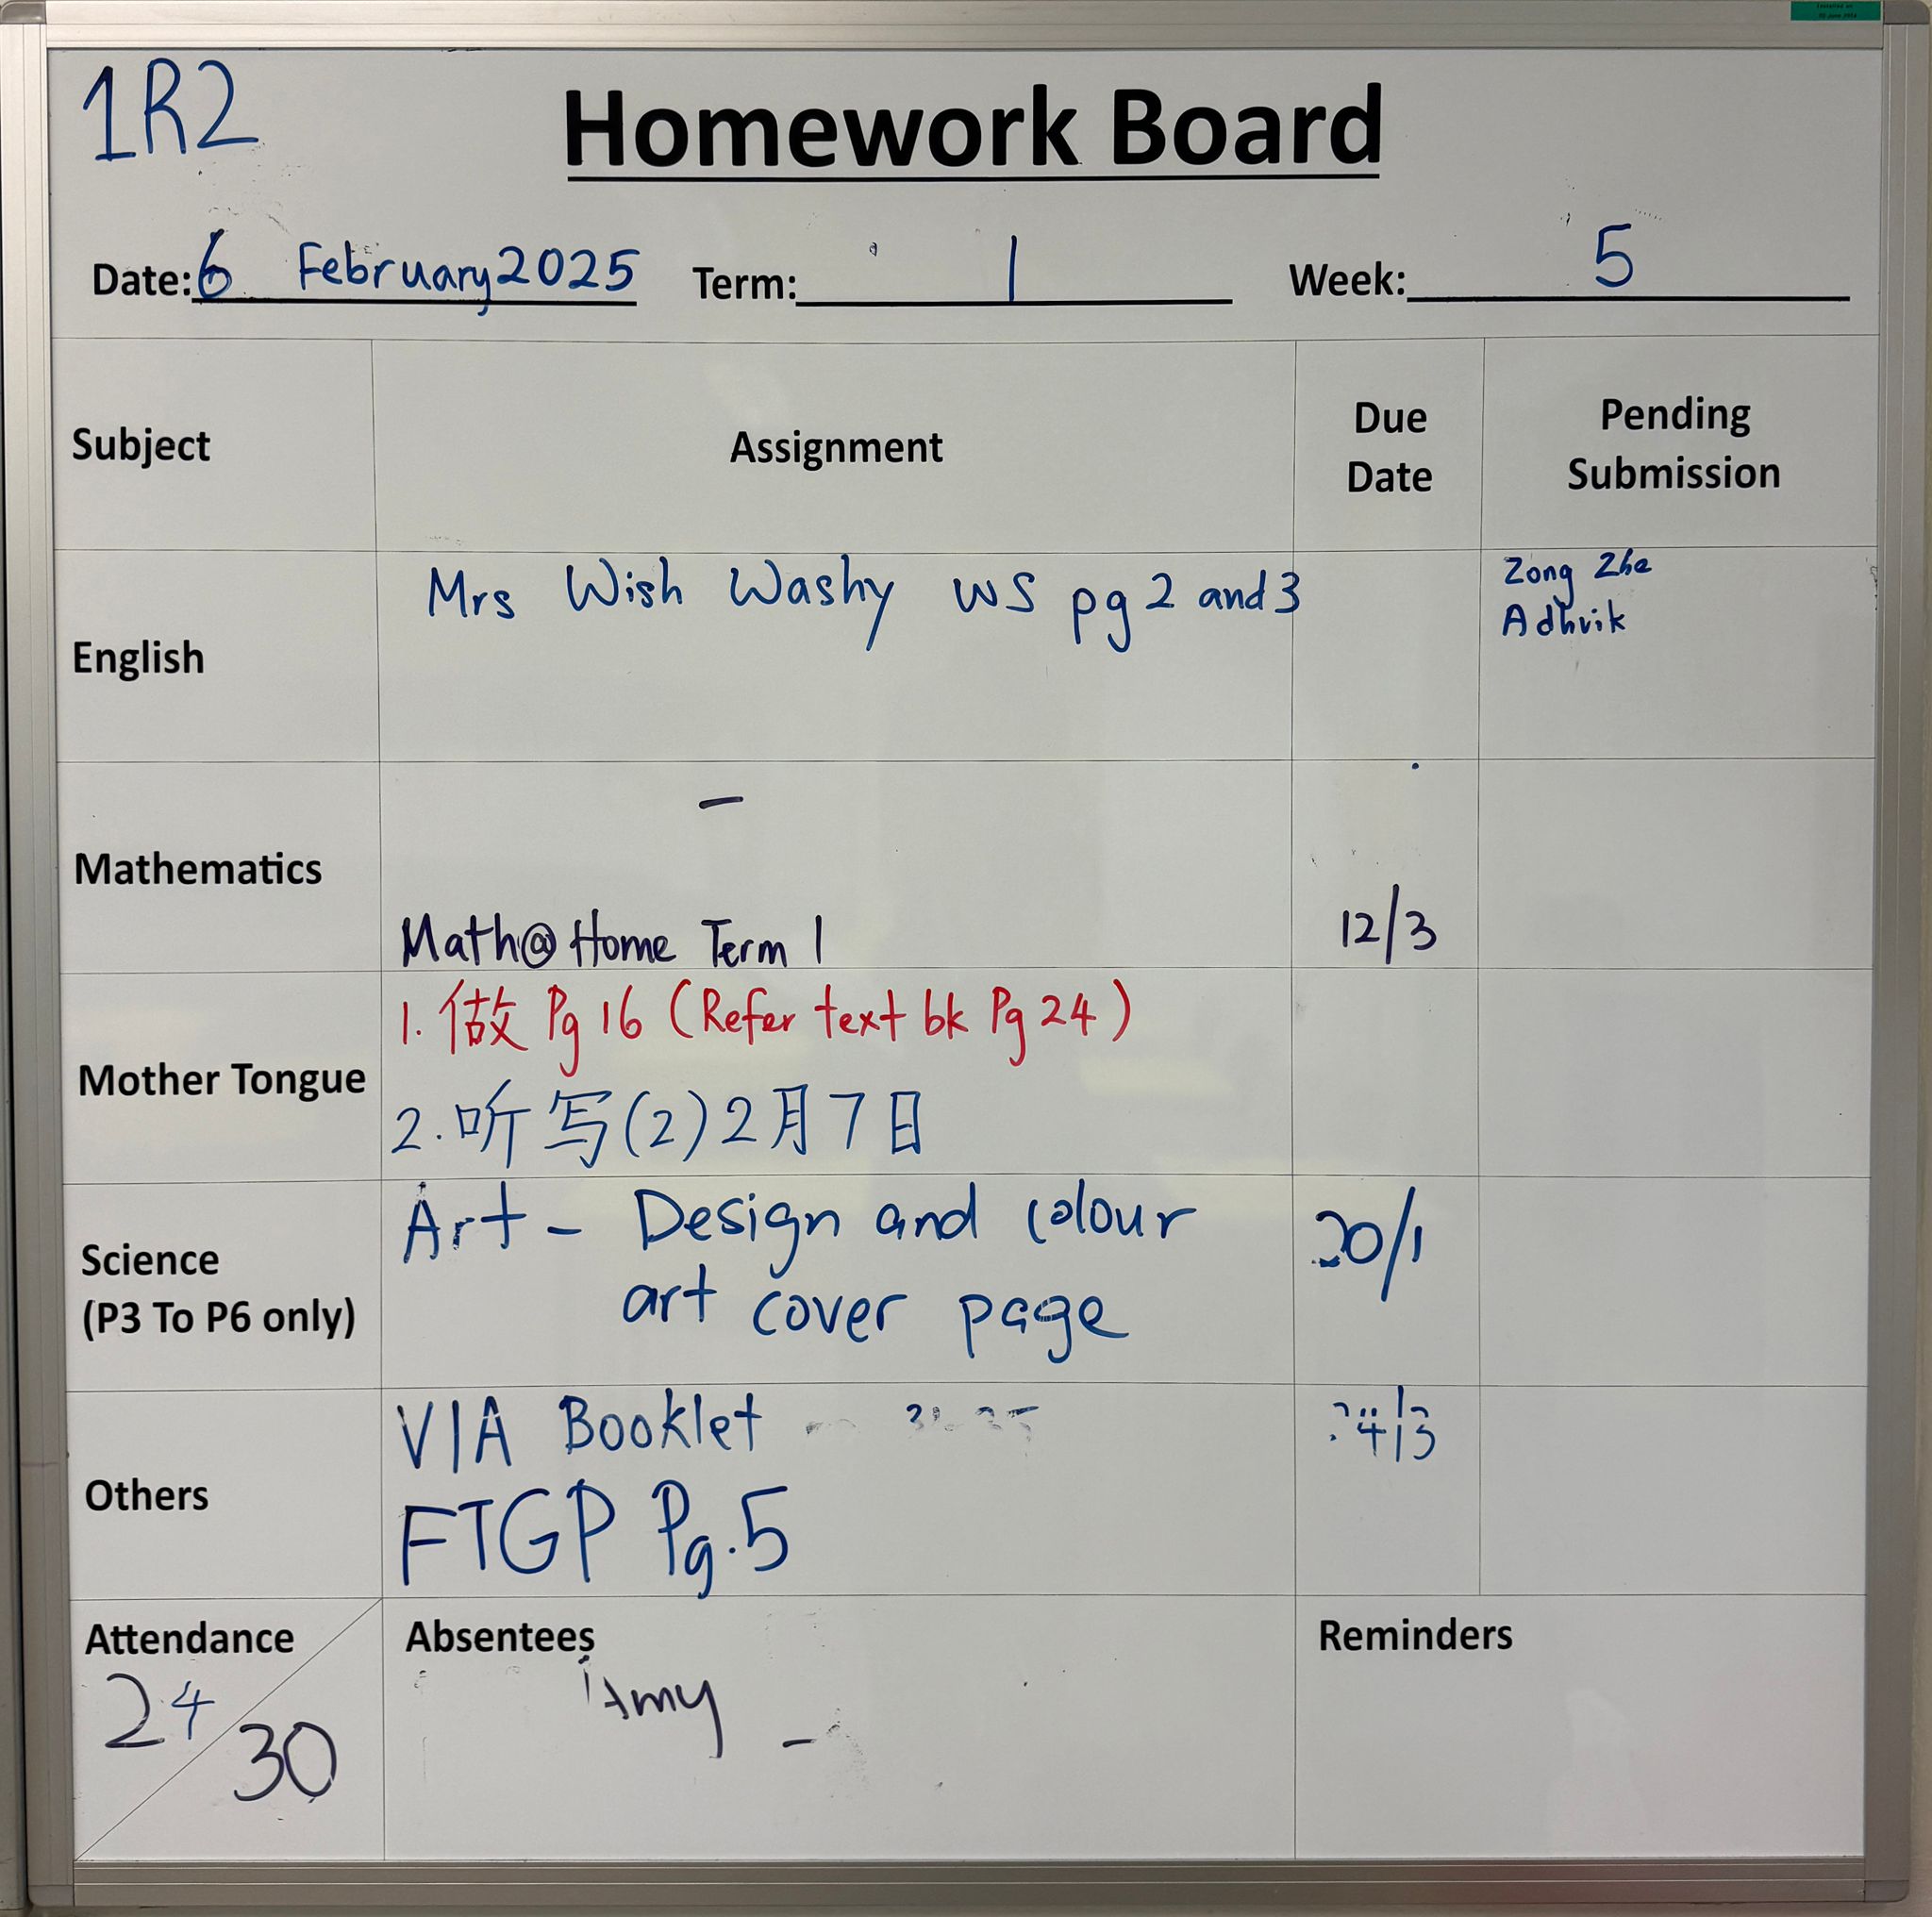 1R2
Homework Board
Date: 6 February 2025 Term: 1 Week: 5
Subject Assignment Due Date Pending Submission
English Mrs Wish Washy WS pg 2 and 3 Zong Zhe
Adhvik
Mathematics –
Math@Home Term 1 12/3
Mother Tongue 1. 做 Pg 16 (Refer text bk Pg 24)
2. 听写(2) 2月7日
Science
(P3 To P6 only)
Art – Design and colour 20/1
art cover page
Others VIA Booklet
FTGP Pg.5
Attendance Absentees Reminders
24 / 30 Amy –